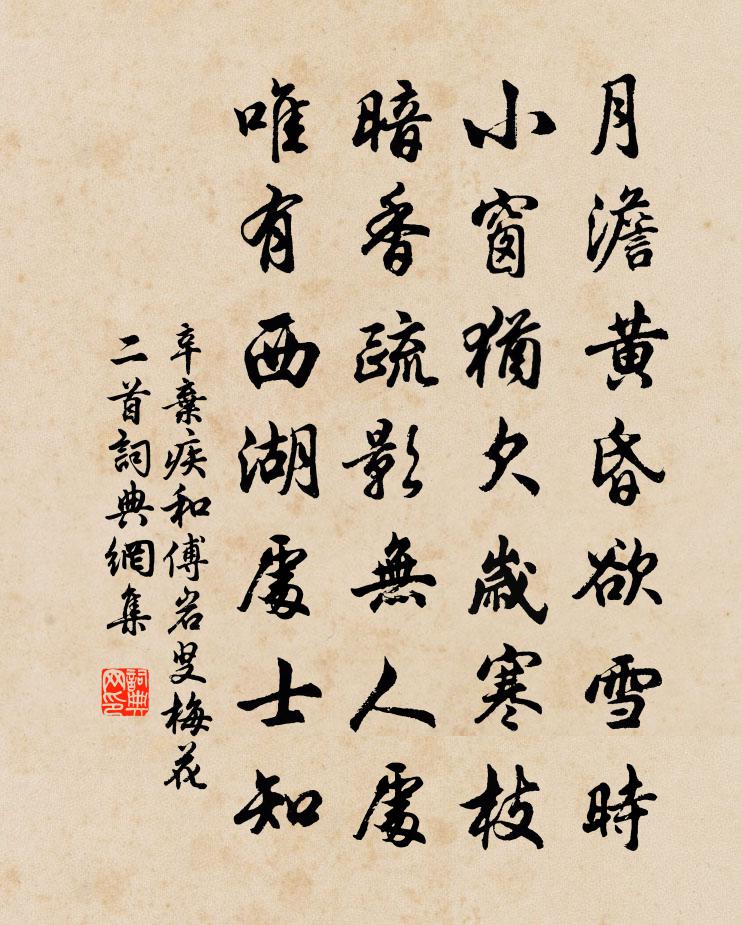 月澹黄昏欲雪時
小窗猶欠歲寒枝
暗香疏影無人處
唯有西湖處士知
辛棄疾和傅岩叟梅花
二首詞典網集
詞典
网印